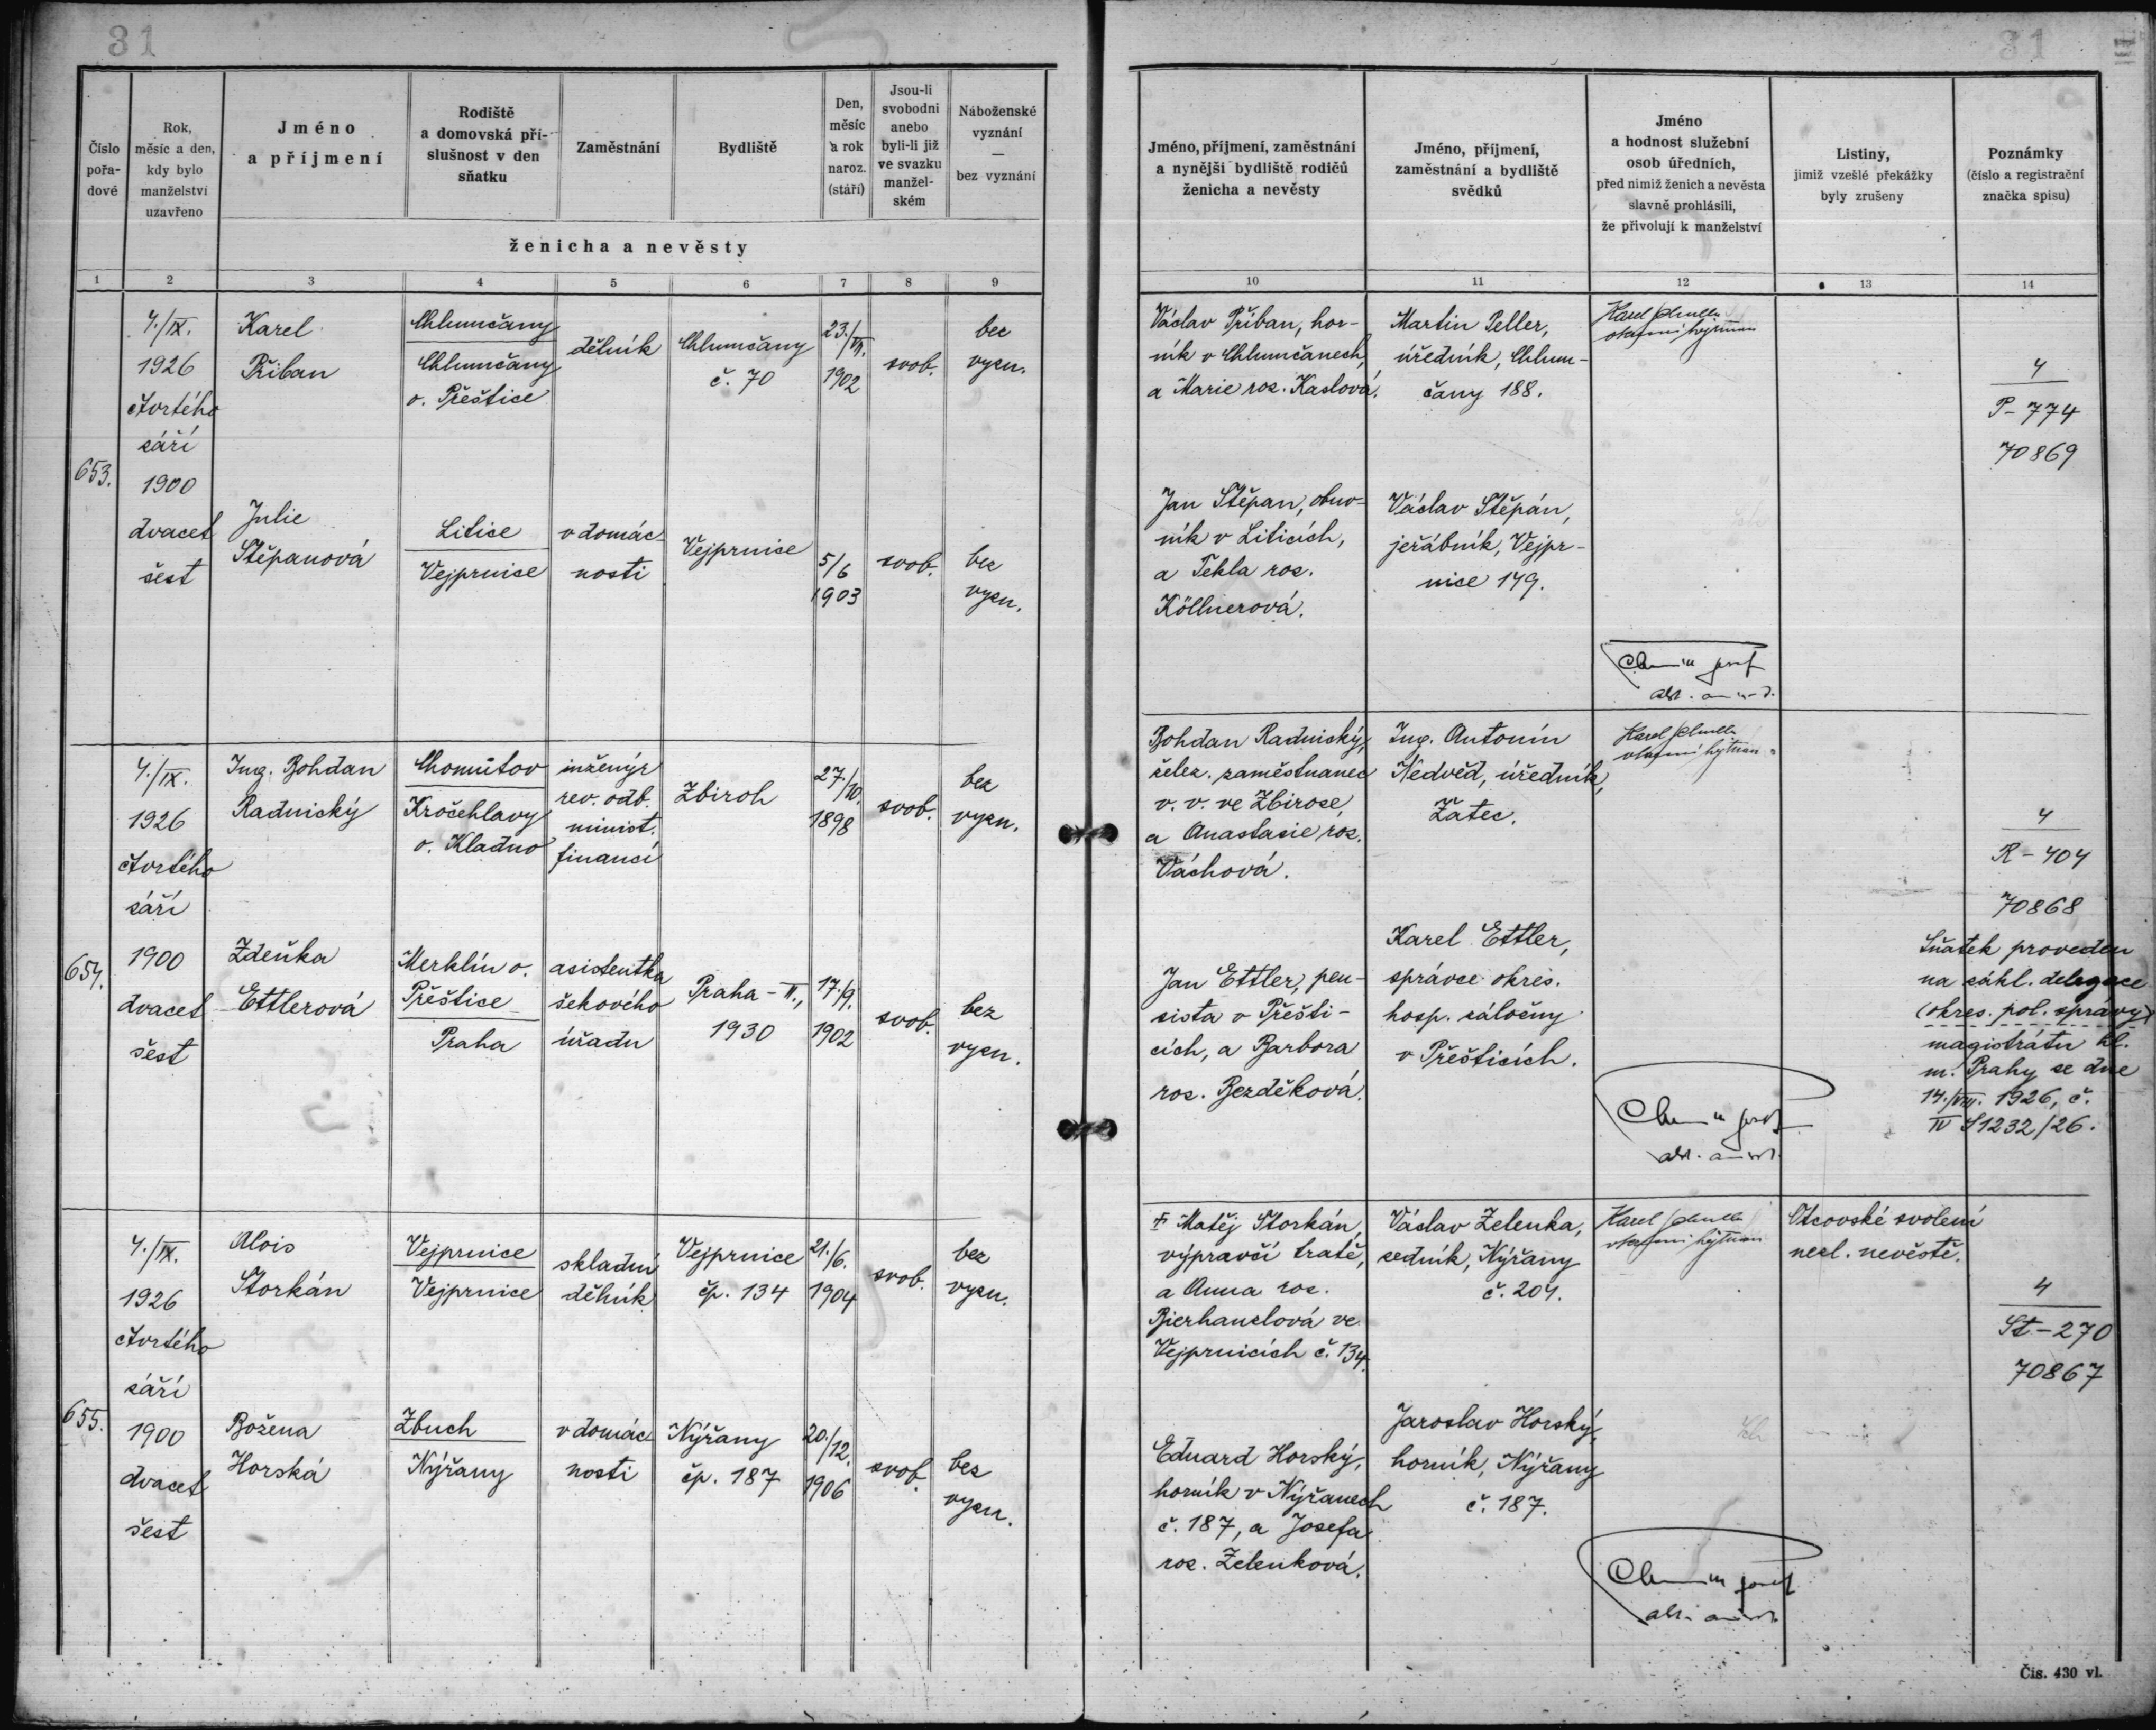 31
31
Číslo
pořa-
dové
Rok,
měsíc a den,
kdy bylo
manželství
uzavřeno
Jméno
a příjmení
Rodiště
a domovská pří-
slušnost v den
sňatku
Zaměstnání
Bydliště
Den,
měsíc
a rok
naroz.
(stáří)
Jsou-li
svobodni
anebo
byli-li již
ve svazku
manžel-
ském
Náboženské
vyznání
—
bez vyznání
ženicha a nevěsty
Jméno, příjmení, zaměstnání
a nynější bydliště rodičů
ženicha a nevěsty
Jméno, příjmení,
zaměstnání a bydliště
svědků
Jméno
a hodnost služební
osob úředních,
před nimiž ženich a nevěsta
slavně prohlásili,
že přivolují k manželství
Listiny,
jimiž vzešlé překážky
byly zrušeny
Poznámky
(číslo a registrační
značka spisu)
1 2 3 4 5 6 7 8 9
10 11 12 13 14
653.
4./IX.
1926
čtvrtého
září
1900
dvacet
šest
Karel
Přiban
Chlumčany
Chlumčany
o. Přeštice
dělník
Chlumčany
č. 70
23./VII.
1902
svob.
bez
vyzn.
Václav Přiban, hor-
ník v Chlumčanech,
a Marie roz. Kaslová.
Martin Peller,
úředník, Chlum-
čany 188.
Karel
4
P-774
70869
Julie
Štěpanová
Litice
Vejprnice
v domác
nosti
Vejprnice
5/6
1903
svob.
bez
vyzn.
Jan Štěpan, obuv-
ník v Liticích,
a Tekla roz.
Köllnerová.
Václav Štěpán,
jeřábník, Vejpr-
nice 149.
654.
4./IX.
1926
čtvrtého
září
1900
dvacet
šest
Ing. Bohdan
Radnický
Chomútov
Kročehlavy
o. Kladno
inženýr
rev. odb.
minist.
financí
Zbiroh
27./10.
1898
svob.
bez
vyzn.
Bohdan Radnický,
želez. zaměstnanec
v. v. ve Zbiroze
a Anastasie roz.
Váchová.
Ing. Antonín
Nedvěd, úředník,
Žatec.
Karel
4
R-404
70868
Zdeňka
Ettlerová
Merklín o.
Přeštice
Praha
asistentka
šekového
úřadu
Praha-II.,
1930
17./9.
1902
svob.
bez
vyzn.
Jan Ettler, pen-
sista v Přešti-
cích, a Barbora
roz. Bezděková.
Karel Ettler,
správce okres.
hosp. záložny
v Přešticích.
Sňatek proveden
na zákl. delegace
(okres. pol. správy)
magistrátu hl.
m. Prahy ze dne
14./VIII. 1926, č.
IV S1232/26.
655.
4./IX.
1926
čtvrtého
září
1900
dvacet
šest
Alois
Štorkán
Vejprnice
Vejprnice
skladní
dělník
Vejprnice
čp. 134
21./6.
1904
svob.
bez
vyzn.
† Matěj Štorkán,
výpravčí tratě,
a Anna roz.
Bierhanslová ve
Vejprnicích č. 134.
Václav Zelenka,
sedník, Nýřany
č. 204.
Karel
Otcovské svolení
nezl. nevěstě.
4
St-270
70867
Božena
Horská
Zbuch
Nýřany
v domác
nosti
Nýřany
čp. 187
20./12.
1906
svob.
bez
vyzn.
Eduard Horský,
horník v Nýřanech
č. 187, a Josefa
roz. Zelenková.
Jaroslav Horský,
horník, Nýřany
č. 187.
Čis. 430 vl.